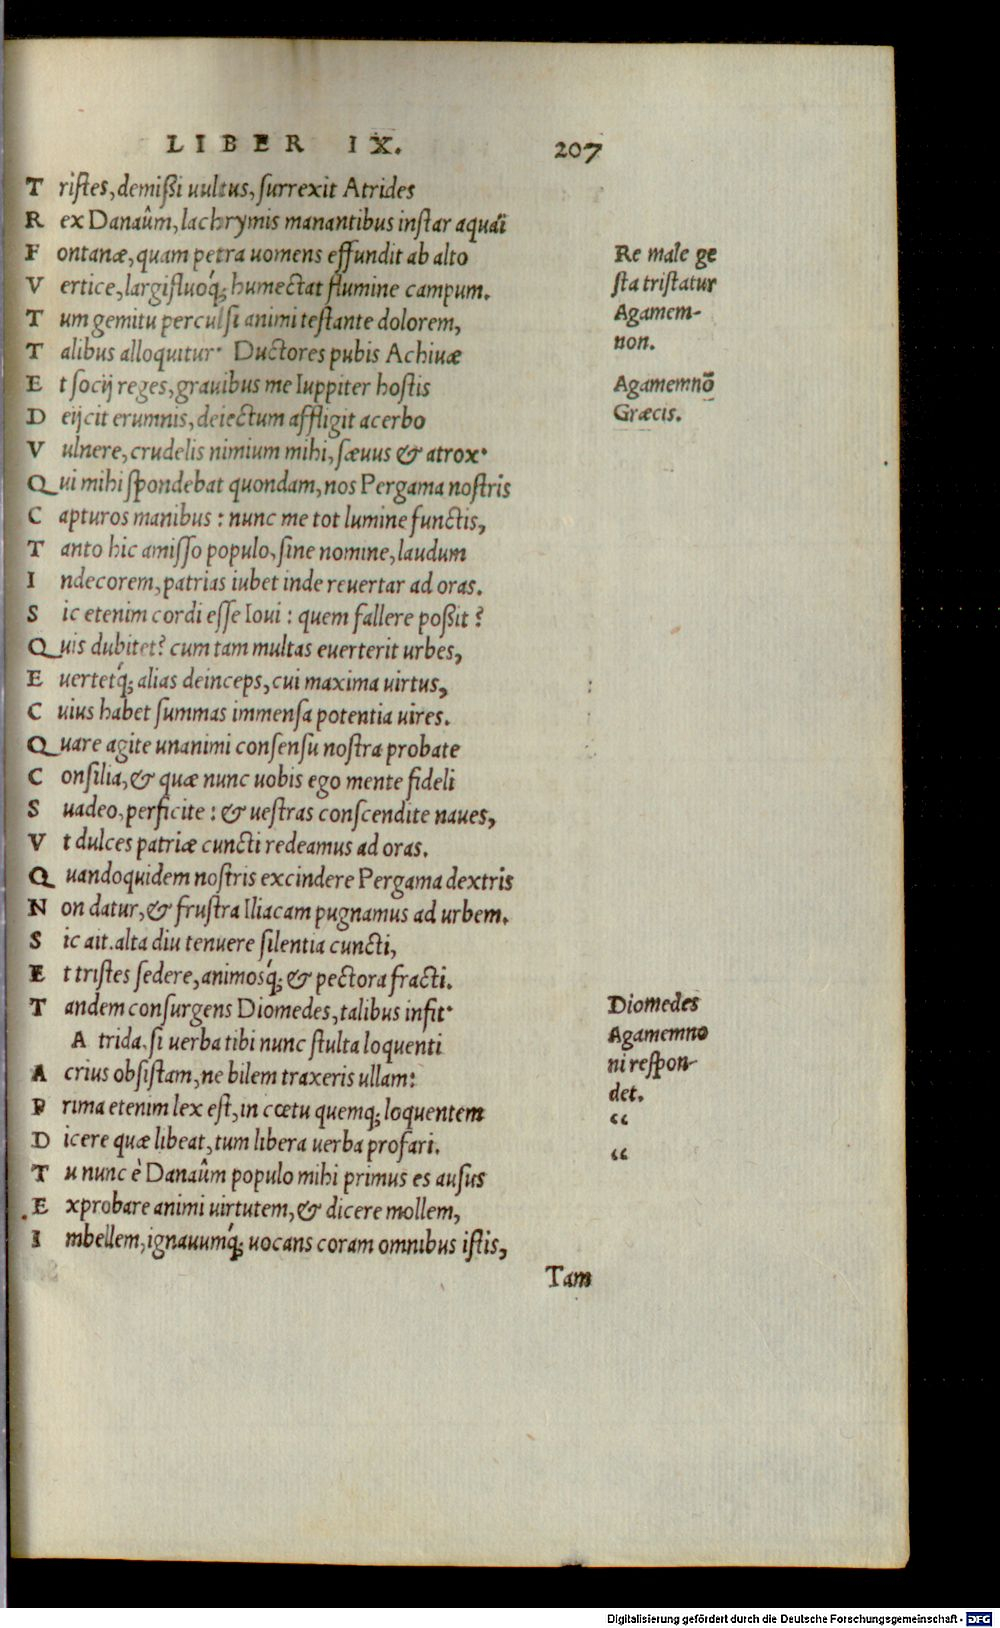 LIBER IX. 207
Tristes, demißi uultus, surrexit Atrides
Rex Danaûm, lachrymis manantibus instar aquäi
Fontanæ, quam petra uomens effundit ab alto
Vertice, largifluóq; humectat flumine campum.
Tum gemitu perculsi animi testante dolorem,
Talibus alloquitur· Ductores pubis Achiuæ
Et socij reges, grauibus me Iuppiter hostis
Deijcit erumnis, deiectum affligit acerbo
Vulnere, crudelis nimium mihi, sæuus & atrox·
Qui mihi spondebat quondam, nos Pergama nostris
Capturos manibus: nunc me tot lumine functis,
Tanto hic amisso populo, sine nomine, laudum
Indecorem, patrias iubet inde reuertar ad oras.
Sic etenim cordi esse Ioui: quem fallere poßit?
Quis dubitet? cum tam multas euerterit urbes,
Euertetq́; alias deinceps, cui maxima uirtus,
Cuius habet summas immensa potentia uires.
Quare agite unanimi consensu nostra probate
Consilia, & quæ nunc uobis ego mente fideli
Suadeo, perficite: & uestras conscendite naues,
Vt dulces patriæ cuncti redeamus ad oras.
Quandoquidem nostris excindere Pergama dextris
Non datur, & frustra Iliacam pugnamus ad urbem.
Sic ait. alta diu tenuere silentia cuncti,
Et tristes sedere, animosq́; & pectora fracti.
Tandem consurgens Diomedes, talibus infit·
Atrida, si uerba tibi nunc stulta loquenti
Acrius obsistam, ne bilem traxeris ullam:
Prima etenim lex est, in cœtu quemq; loquentem
Dicere quæ libeat, tum libera uerba profari.
Tu nunc è Danaûm populo mihi primus es ausus
Exprobare animi uirtutem, & dicere mollem,
Imbellem, ignauumq́; uocans coram omnibus istis,
Tam
Re male ge
sta tristatur
Agamem-
non.
Agamemnō
Græcis.
Diomedes
Agamemno
ni respon-
det.
“
“
Digitalisierung gefördert durch die Deutsche Forschungsgemeinschaft - DFG